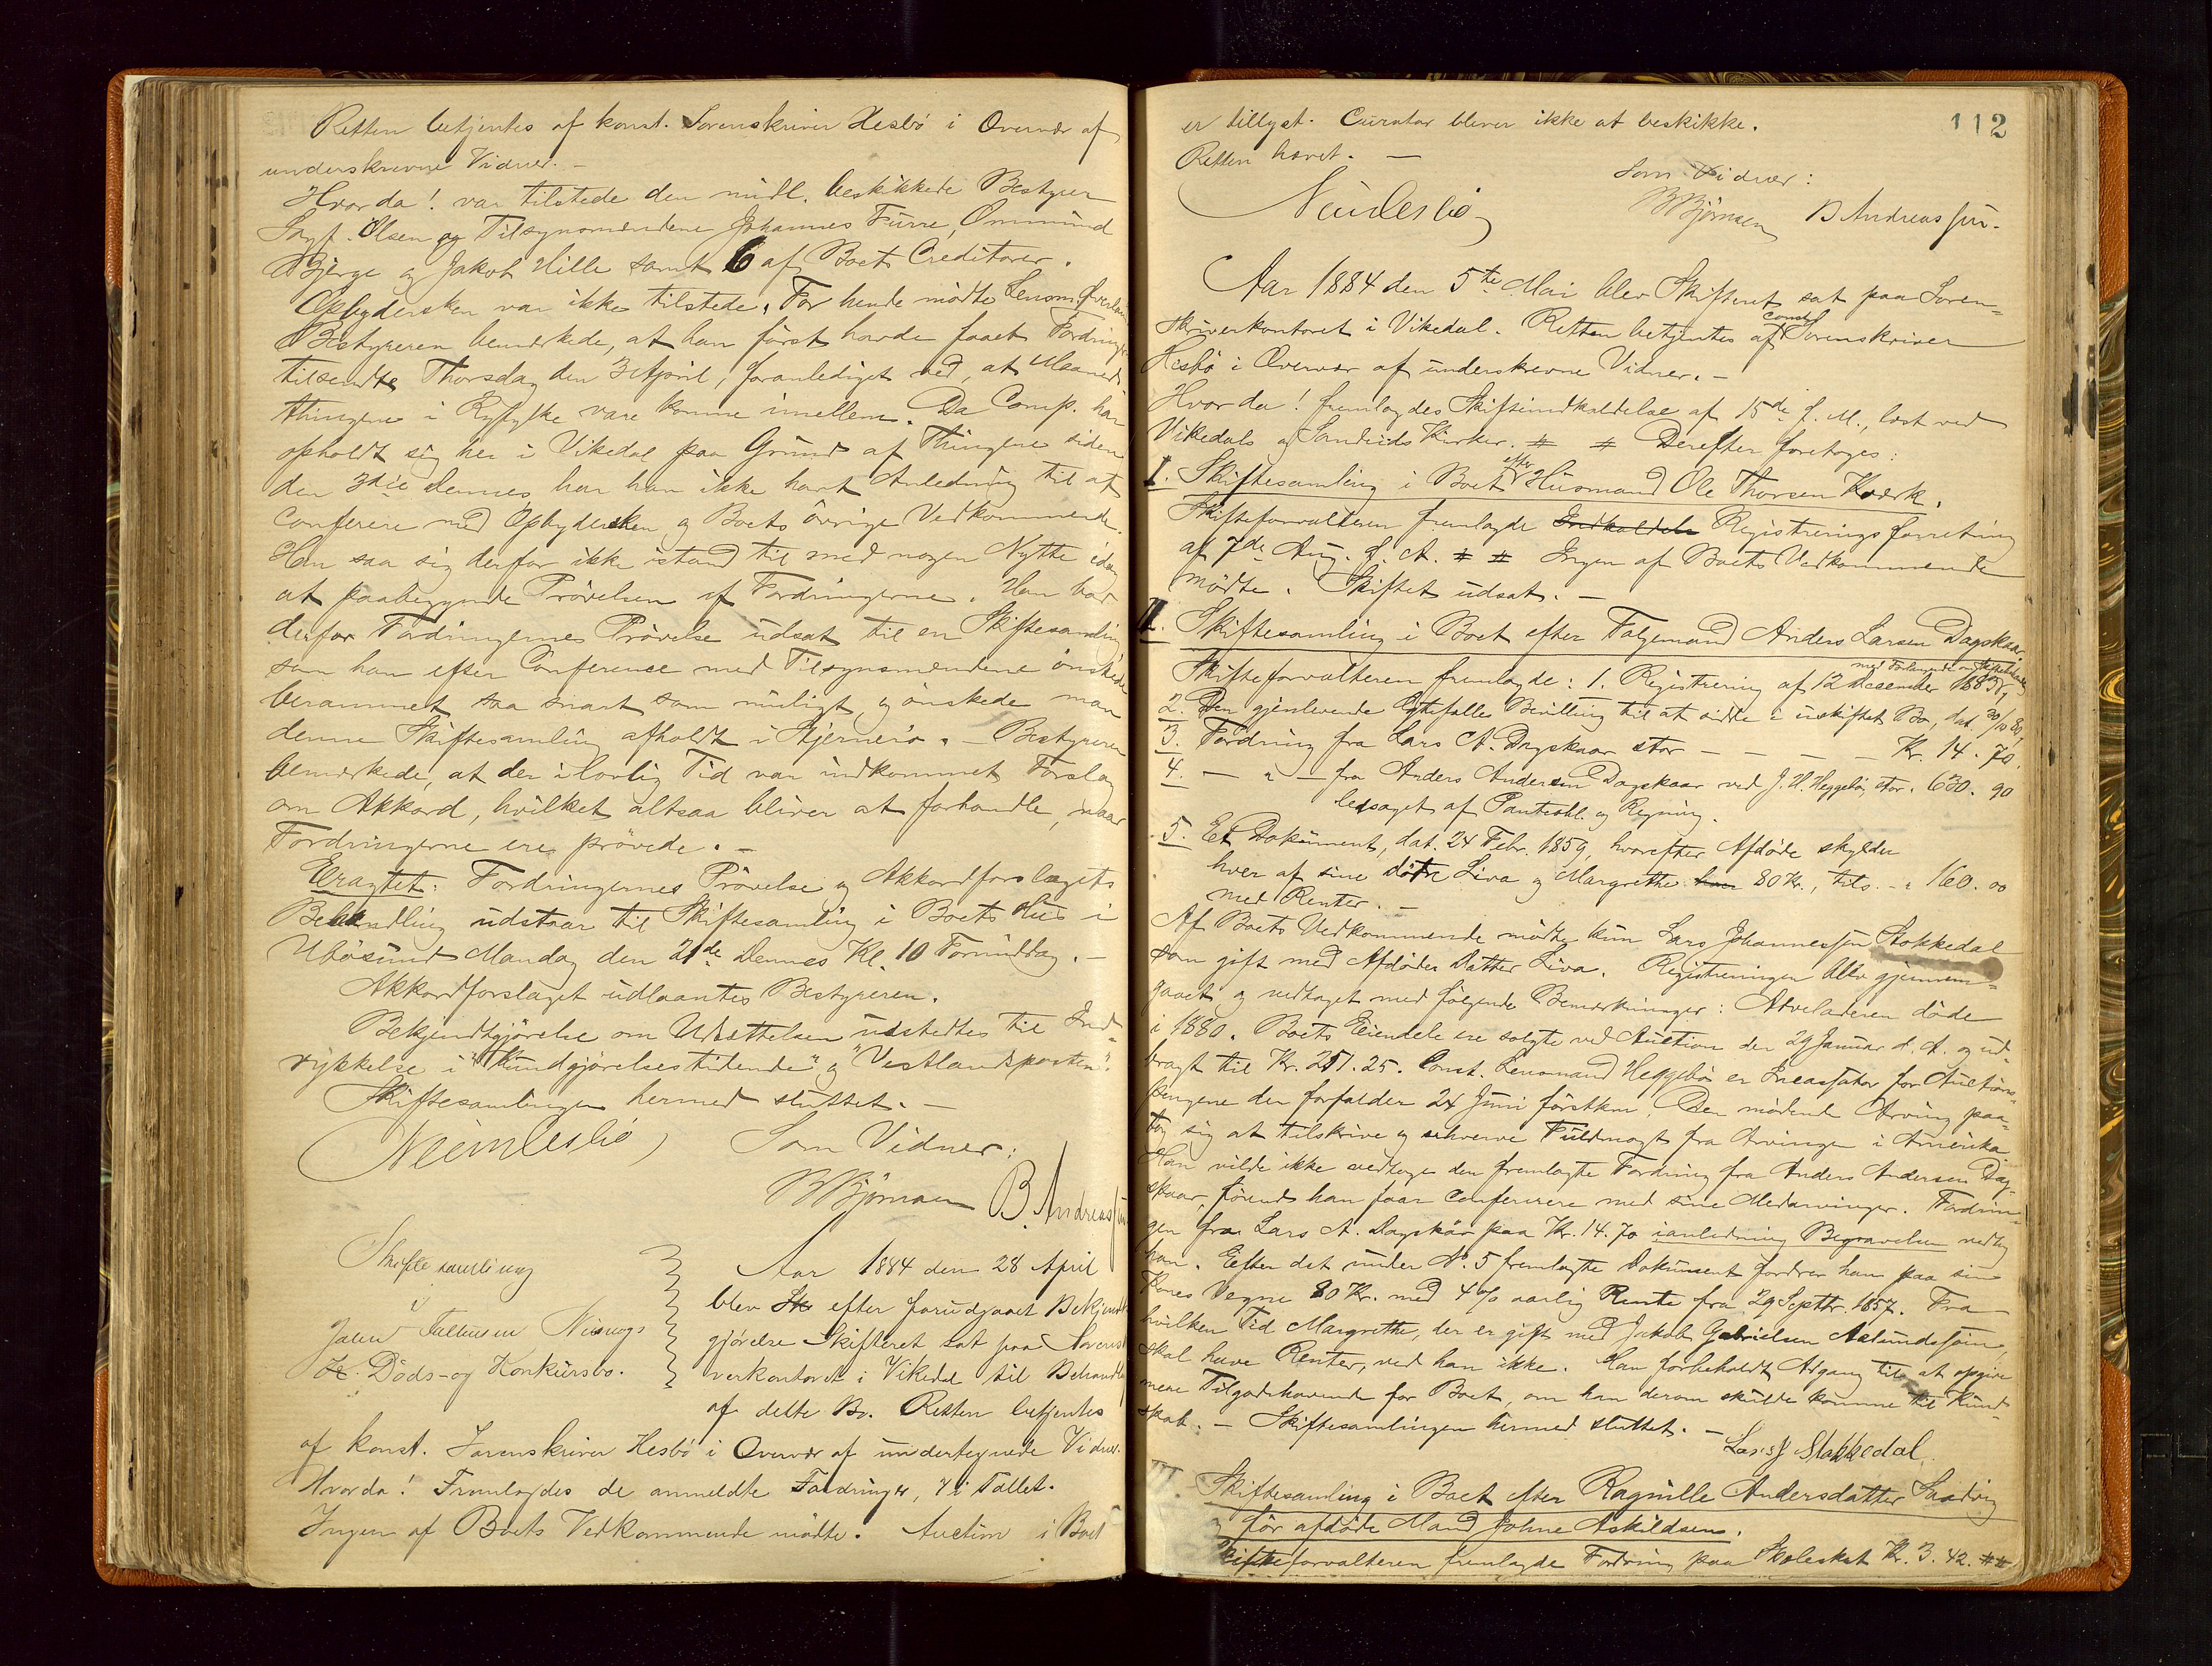 Retten betjentes af konst. Sorenskriver Hesbö i Overvær af
underskrevne Vidner. –
Hvorda! var tilstede den midl. beskikkede Bestyrer
Sagf. Olsen og Tilsynsmændene Johannes Furre, Ommund
Bjerge og Jakob Hille samt 6 af Boets Creditorer.
Opbydersken var ikke tilstede. For hende mödte Lensm.
Bestyreren bemærkede, at han först havde faaet Fordringer
tilsendte Thorsdag den 3 April, foranlediget ved, at Maaneds
thingene i Ryfylke vare komne imellem. Da Comp. har
opholdt sig her i Vikedal paa Grund af Thingene siden
den 3die dennes, har han ikke havt Anledning til at
conferere med Opbydersken og Boets övrige Vedkommende.
Han saa sig derfor ikke istand til med nogen Nytte idag
at paabegynde Prövelsen af Fordringerne. Han bad
derfor Fordringernes Prövelse udsat til en Skiftesamling
som han efter Conference med Tilsynsmændene önskede
berammet saa snart som muligt, og önskede man
denne Skiftesamling afholdt i Stjernerö. – Bestyreren
bemærkede, at der i lovlig Tid var indkommet Forslag
om Akkord, hvilket altsaa bliver at forhandle, naar
Fordringerne ere prövede. –
Eragtet: Fordringernes Prövelse og Akkordforslagets
Behandling udstaar til Skiftesamling i Boets Hus i
Ubösund Mandag den 21de dennes Kl. 10 Formiddag. –
Akkordforslaget udlaantes Bestyreren.
Bekjendtgjörelse om Udsættelsen udstedtes til Ind-
rykkelse i "Kundgjörelsestidende" og "Vestlandsposten".
Skiftesamlingen hermed sluttet. –
Som Vidner:
BBjörnsen B. Andreassen
Skiftesamling
i
Tallaksen
Döds- og Konkursbo.
Aar 1884 den 28 April
blev efter forudgaaet Bekjendt
gjörelse Skifteret sat paa Sorenskri
verkontoret i Vikedal til Behandling
af dette Bo. Retten betjentes
af konst. Sorenskriver Hesbö i Overvær af undertegnede Vidner.
Hvorda! Fremlagdes de anmeldte Fordringer, 7 i Tallet.
Ingen af Boets Vedkommende mödte. Auction i Boet
112
er tillyst. Curator bliver ikke at beskikke.
Retten hævet. –
Som Vidner:
BBjörnsen B Andreassen.
Aar 1884 den 5te Mai blev Skifteret sat paa Soren-
skriverkontoret i Vikedal. Retten betjentes af const. Sorenskriver
Hesbö i Overvær af underskrevne Vidner. –
Hvorda! fremlagdes Skifteindkaldelse af 15de f. M., læst ved
Vikedals og Sandeids Kirker. # # Derefter foretoges:
I. Skiftesamling i Boet efter Husmand Ole Thorsen Kværk.
Skifteforvalteren fremlagde Indkaldelse Registreringsforretning
af 7de Aug. f. A. # # Ingen af Boets Vedkommende
mödte. Skiftet udsat. –
II. Skiftesamling i Boet efter Folgemand Anders Larsen Dagskaar.
Skifteforvalteren fremlagde: 1. Registrering af 12 December 1883,
2. Den gjenlevende Ægtefælles Bevilling til at sidde i uskiftet Bo, dat. 30/10 80,
3. Fordring fra Lars A. Dagskaar stor – – – – Kr. 14. 70.
4. – " – fra Anders Andersen Dagskaar ved J. H. Heggebö, stor " 630. 90
ledsaget af Panteobl. og Regning.
5. Et Dokument, dat. 24 Febr. 1859, hvorefter Afdöde skylder
hver af sine dötre Liva og Margrethe 80 Kr., tils. – " 160. 00
med Renter. –
Af Boets Vedkommende mödte kun Lars Johannessen Stokkedal
som gift med Afdödes Datter Liva. Registreringen blev gjennem-
gaaet og vedtaget med fölgende Bemærkninger: Arveladeren döde
i 1880. Boets Eiendele ere solgte ved Auction den 29 Januar d. A. og ud-
bragt til Kr. 257. 25. Const. Lensmand Heggebö er Incassator for Auctions-
pengene der forfalder 24 Juni förstkm. Den mödende Arving paa-
tog sig at tilskrive og erhverve Fuldmagt fra Arvinger i Amerika.
Han vilde ikke vedtage den fremlagte Fordring fra Anders Andersen Dag-
skaar, förend han faar conferere med sine Medarvinger. Fordrin-
gen fra Lars A. Dagskaar paa Kr. 14. 70 ianledning Begravelsen vedtog
han. Efter det under No. 5 fremlagte Dokument fordrer han paa sin
Kones Vegne 80 Kr. med 4 % aarlig Rente fra 29 Septbr. 1857. Fra
hvilken Tid Margrethe, der er gift med Jakob Gabrielsen
skal have Renter, ved han ikke. Han forbeholdt Adgang til at opgive
mere Tilgodehavende for Boet, om han derom skulde komme til Kund-
skab. – Skiftesamlingen hermed sluttet. –
Lars J Stokkedal.
III. Skiftesamling i Boet efter Ragnille Andersdatter
og för afdöde Mand Johne Askildsen.
Skifteforvalteren fremlagde Fordring paa Skoleskat Kr. 3. 42. ##